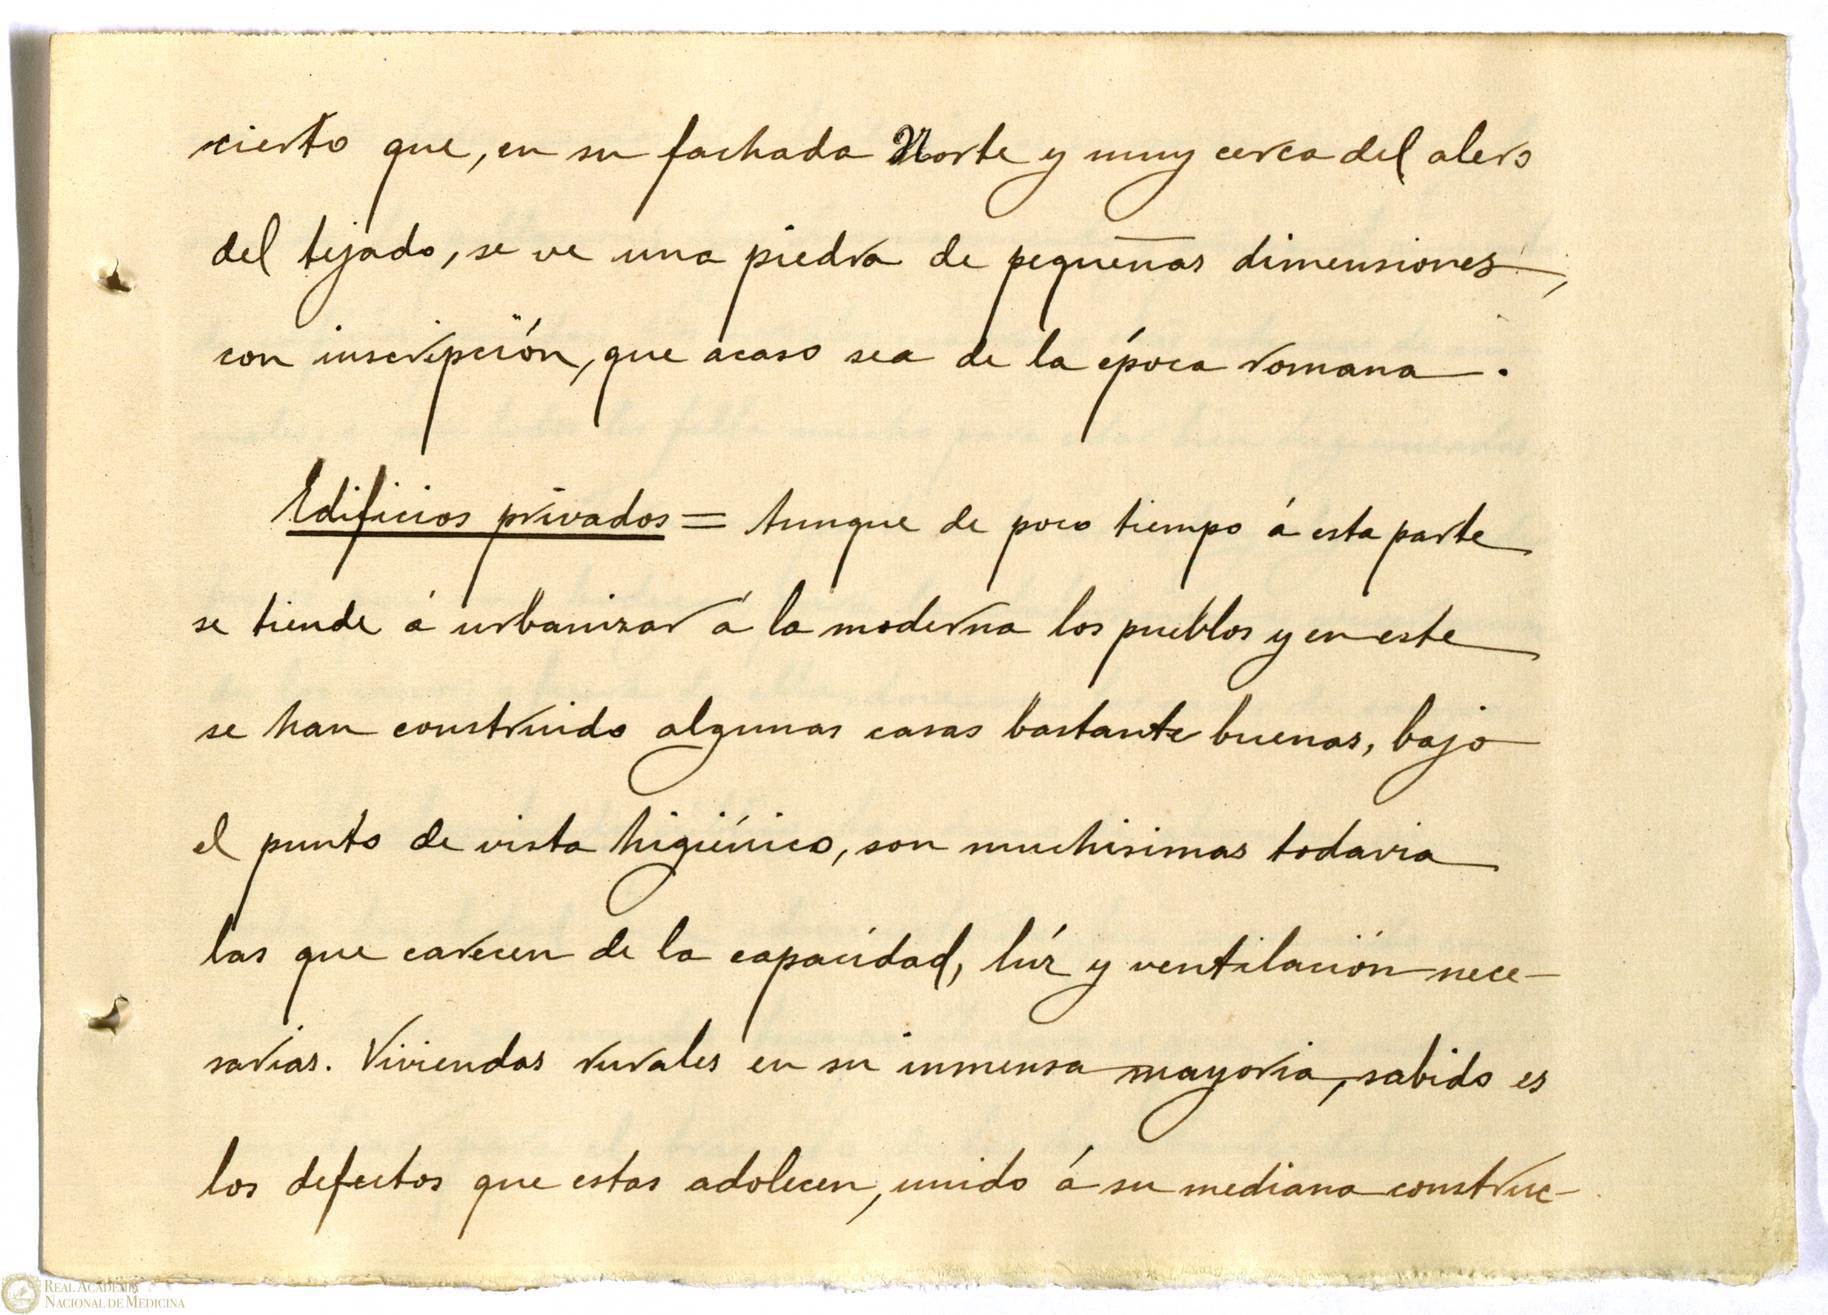 cierto que, en su fachada Norte y muy cerca del alero
del tejado, se ve una piedra de pequeñas dimensiones,
con inscripción, que acaso sea de la época romana.
Edificios privados = Aunque de poco tiempo á esta parte
se tiende á urbanizar á la moderna los pueblos y en este
se han construido algunas casas bastante buenas, bajo
el punto de vista higiénico, son muchisimas todavia
las que carecen de la capacidad, lúz y ventilación nece-
sarias. Viviendas rurales en su inmensa mayoria, sabido es
los defectos que estas adolecen, unido á su mediana construc-
REAL ACADEMIA
NACIONAL DE MEDICINA